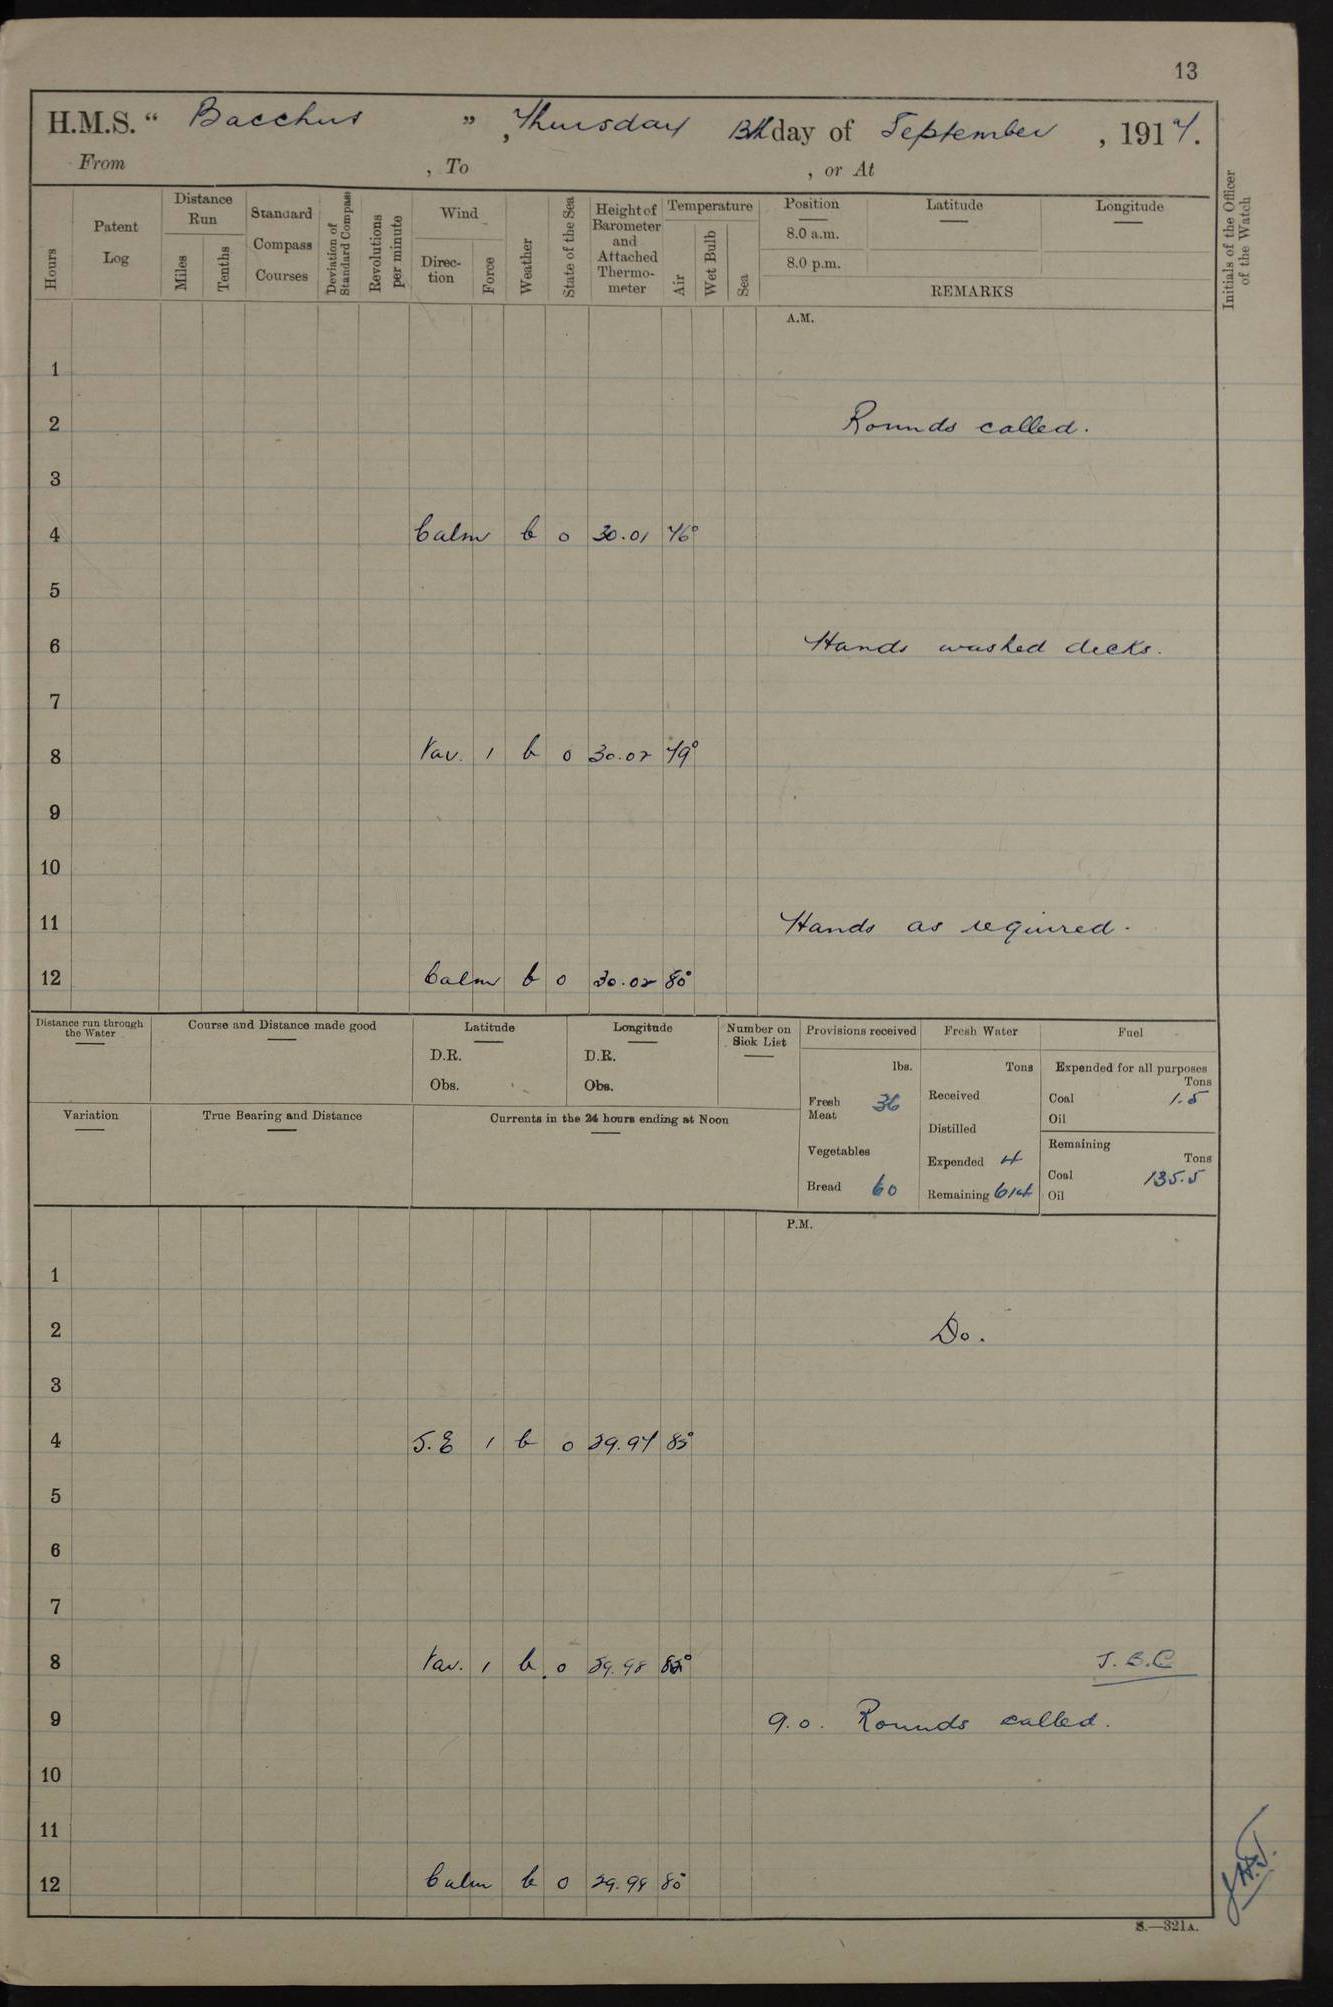 13
H.M.S. “ Bacchus ” , Thursday 13th day of September , 1917.
From , To , or At
Hours
Patent Log
Distance Run
Miles
Tenths
Standard Compass Courses
Deviation of Standard Compass
Revolutions per minute
Wind
Direc-tion
Force
Weather
State of the Sea
Height of Barometer and Attached Thermo-meter
Temperature
Air
Wet Bulb
Sea
Position
8.0 a.m.
8.0 p.m.
Latitude
Longitude
REMARKS
Initials of the Officer of the Watch
A.M.
1
2 Rounds called.
3
4 Calm b 0 30.01 76°
5
6 Hands washed decks.
7
8 Var. 1 b 0 30.02 79°
9
10
11 Hands as required.
12 Calm b 0 30.02 80°
Distance run through the Water
Course and Distance made good
Latitude
D.R.
Obs.
Longitude
D.R.
Obs.
Number on Sick List
Provisions received
lbs.
Fresh Meat 36
Vegetables
Bread 60
Fresh Water
Tons
Received
Distilled
Expended 4
Remaining
Fuel
Expended for all purposes
Tons
Coal 1.5
Oil
Remaining
Tons
Coal 135.5
Oil
Variation
True Bearing and Distance
Currents in the 24 hours ending at Noon
P.M.
1
2 Do.
3
4 S.E 1 b 0 29.97 85°
5
6
7
8 Var. 1 b 0 29.98 J.B.C
9 9.0. Rounds called.
10
11
12 Calm b 0 29.99 80°
S.—321A.